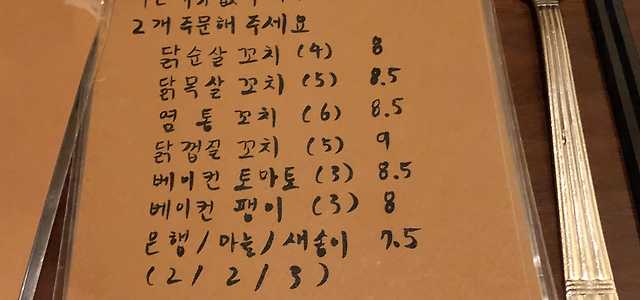 2개 주문해 주세요
닭순살 꼬치 (4) 8
닭목살 꼬치 (5) 8.5
염통 꼬치 (6) 8.5
닭껍질 꼬치 (5) 9
베이컨 토마토 (3) 8.5
베이컨 팽이 (3) 8
은행/마늘/새송이 7.5
(2/2/3)